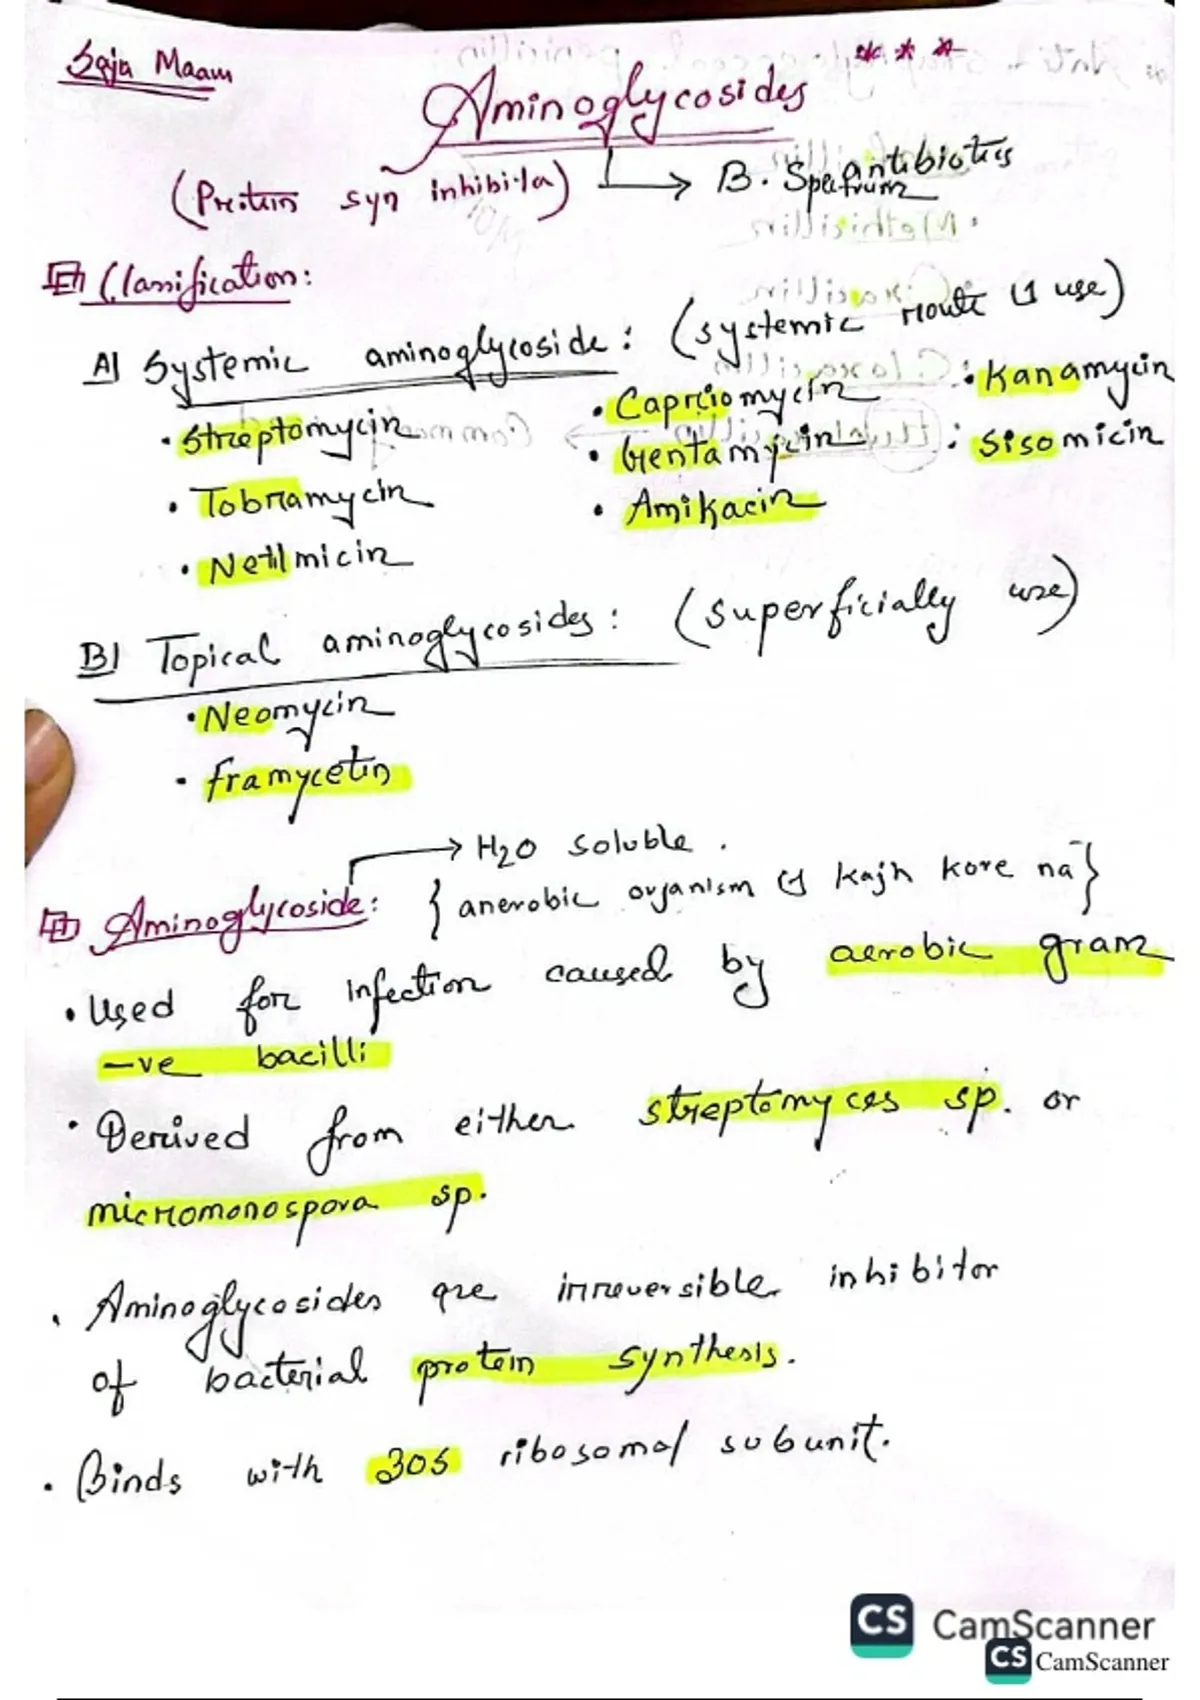 Saja Maam
Aminoglycosides ***
(Protein syn inhibitor) → B. Spectrum antibiotics
Classification:
A) Systemic aminoglycoside: (systemic route এ use)
• Streptomycin • Capreomycin • Kanamycin
• Tobramycin • Gentamycin • Sisomicin
• Netilmicin • Amikacin
B) Topical aminoglycosides: (superficially use)
• Neomycin
• framycetin
→ H2O soluble.
Aminoglycoside: {anerobic organism এ kajh kore na}
• Used for infection caused by aerobic gram
-ve bacilli
• Derived from either streptomyces sp. or
micromonospora sp.
• Aminoglycosides are irreversible inhibitor
of bacterial protein synthesis.
• Binds with 30s ribosomal subunit.
CS CamScanner
CS CamScanner